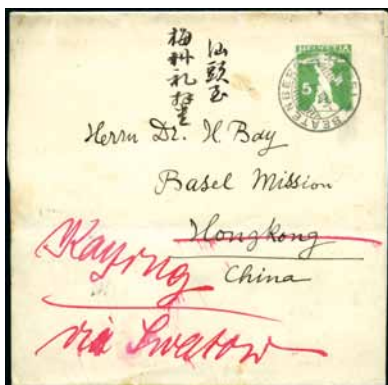 汕頭至
梅州礼拜堂
HELVETIA
5
BEATENBERG
Herrn Dr. H. Bay
Basel Mission
Hongkong
China
Kaying
via Swatow